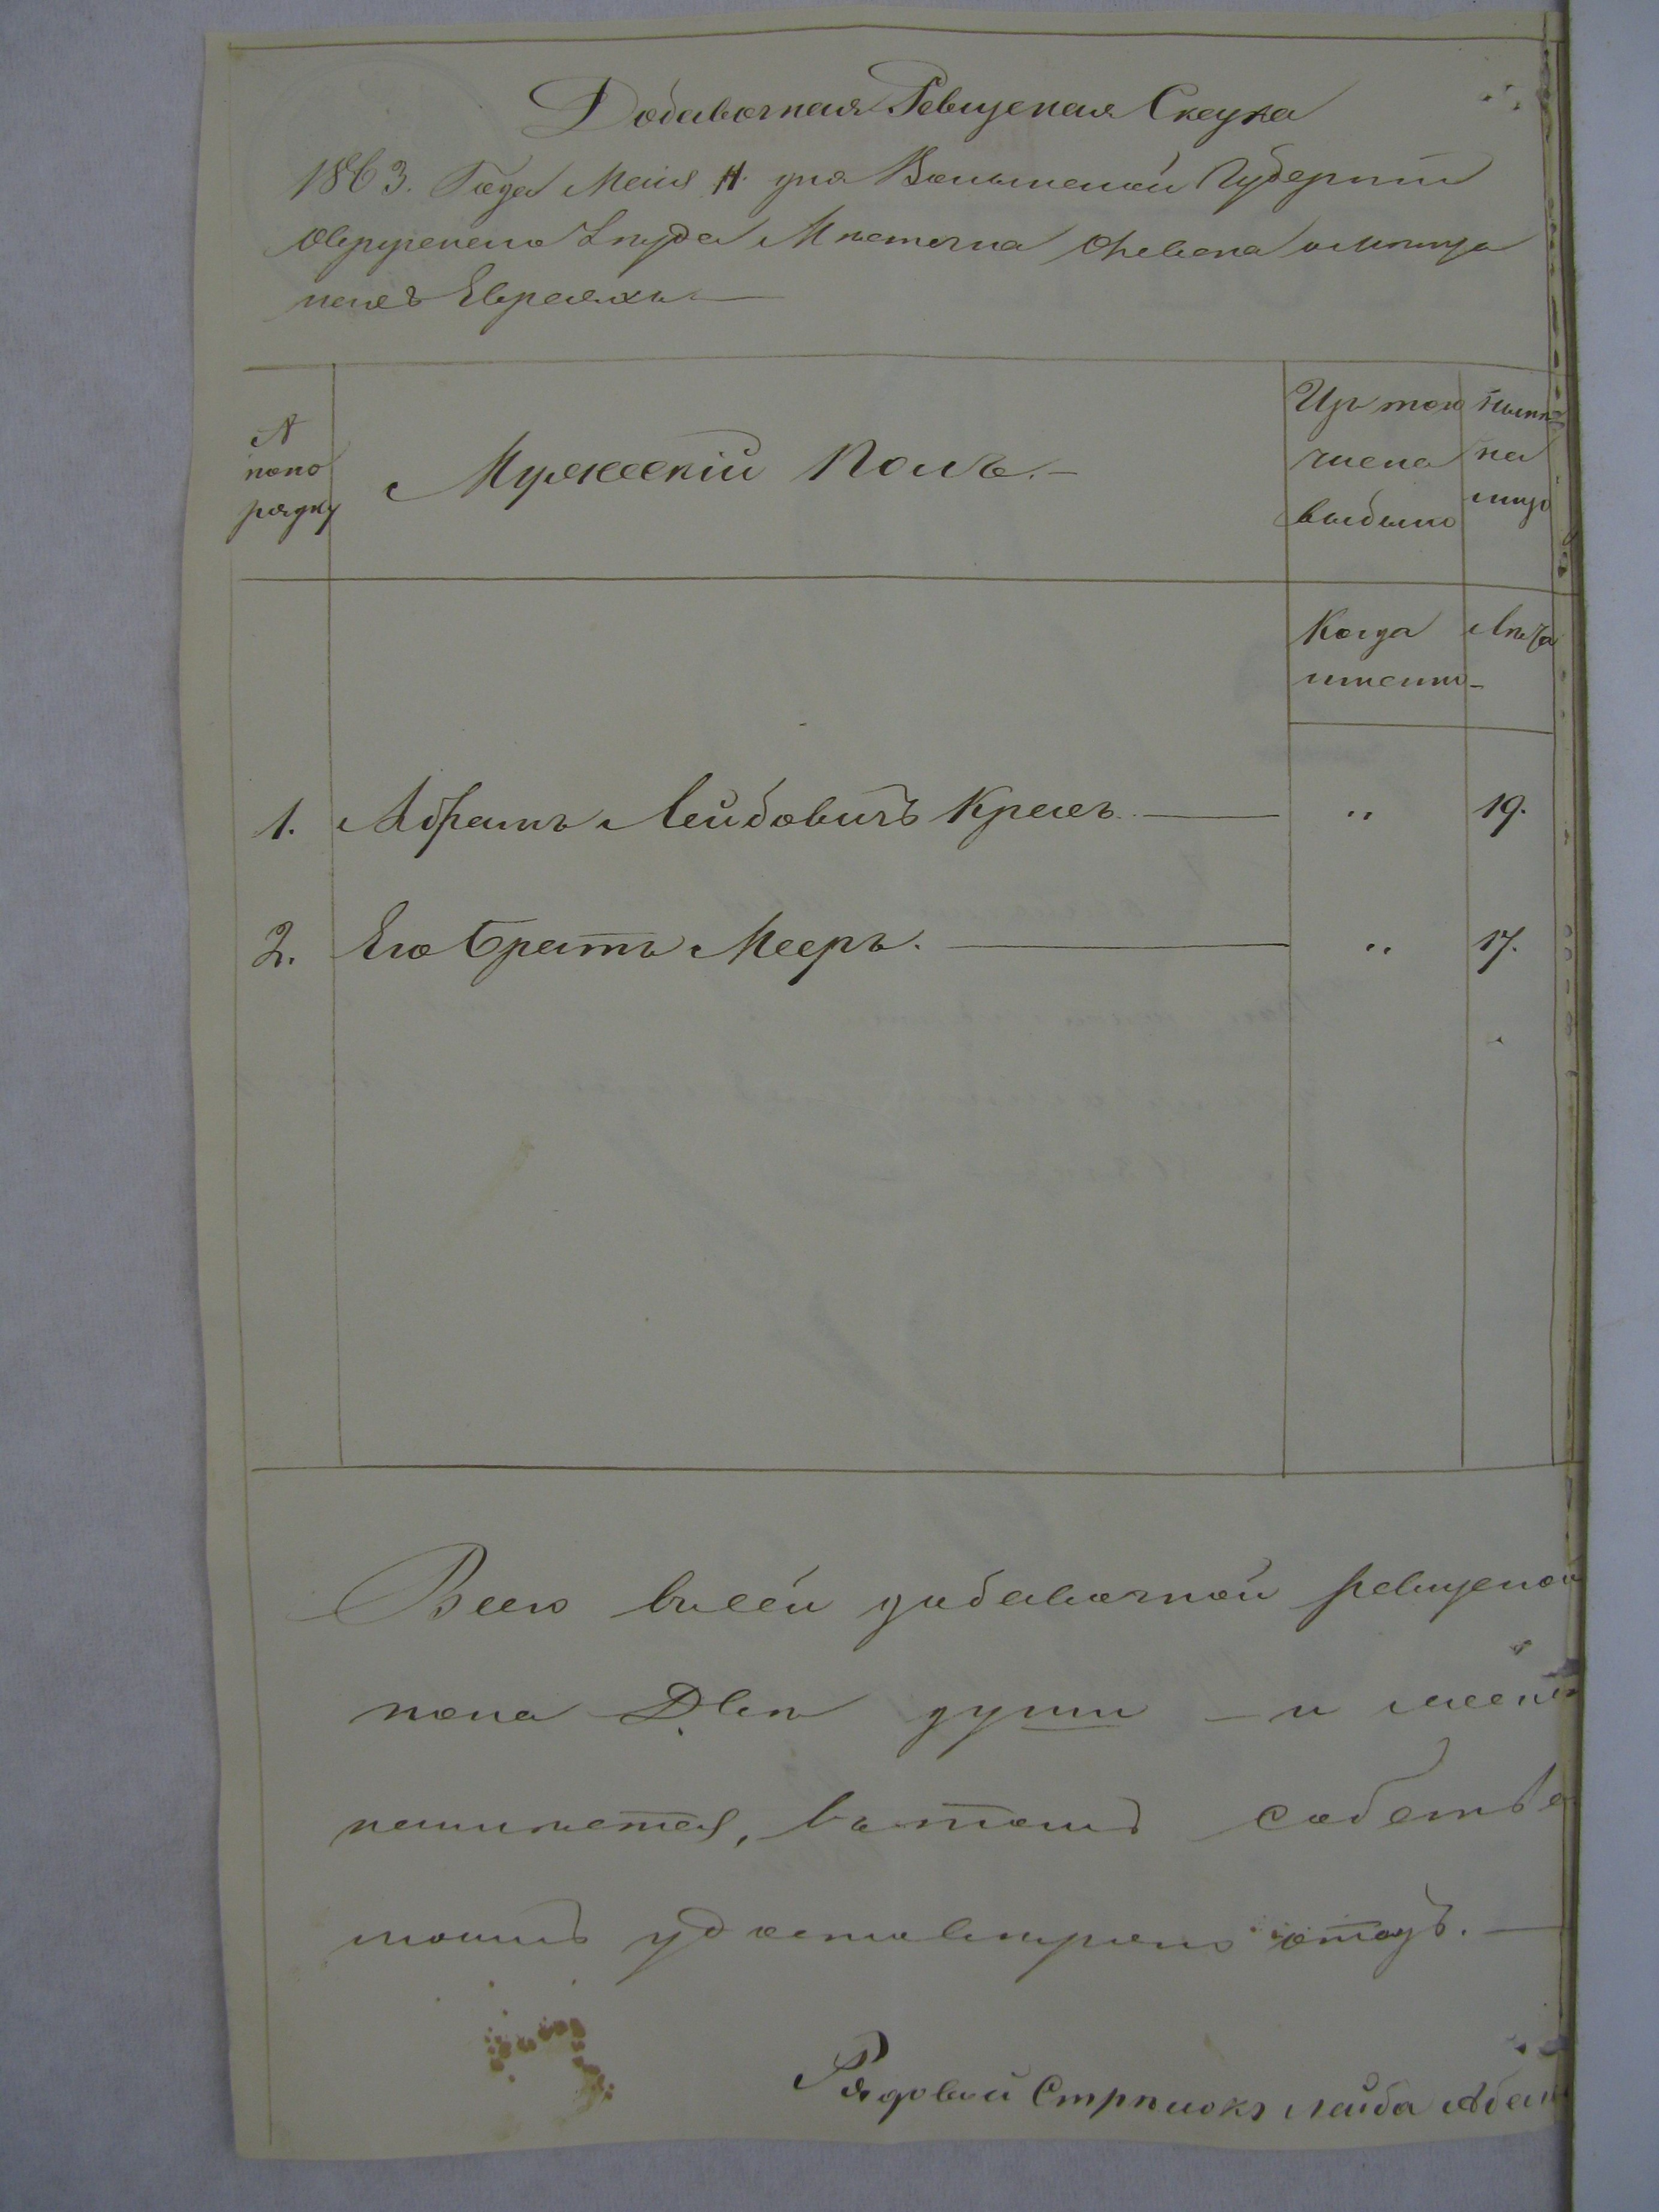 Добавочная Ревизская Сказка
1863. Года Маія 11 дня Волынской Губерніи
Овручскаго Уѣзда Мѣстечка Олевска о мѣща
нахъ Евреяхъ
№
по по
рядку
Мужескій Полъ.
Изъ того
числа
выбыло
Нынѣ
на
лицо
Когда
имѣнно
Лѣта
1. Абрамъ Лейбовичъ Краех „ 19.
2. Его братъ Мееръ. „ 17.
Всего въ сей добавочной ревизской
пола Двѣ души – и
въ томъ собстве
удостовѣряю
Рядовый Стрѣлокъ Лейба